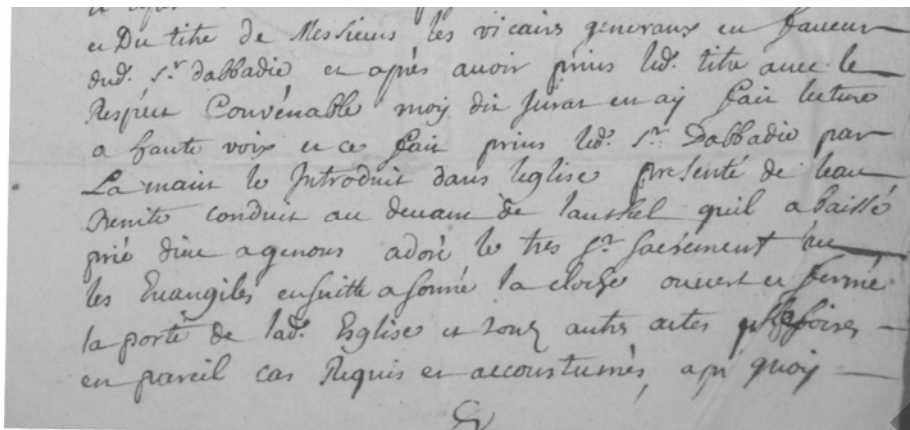 et Du titre de Messieurs les vicairs generaux en faueur
dud. Sr. dabbadie et après auoir prins led. titre auec le
Respect Convénable moy dit Jurat en aÿ fait lecture
a haute voix et ce fait prins led. Sr. Dabbadie par
La main le Introduit dans leglise presenté de leau
Benite conduit au deuant de lauthel quil a baissé
prié dieu agenous adoré le tres St. sacrement leu
les Euangiles ensuitte a sonné la cloche ouvert et fermé
la porte de lad. Eglise et tous autres actes
en pareil cas Requis et accoustumés, apr quoÿ